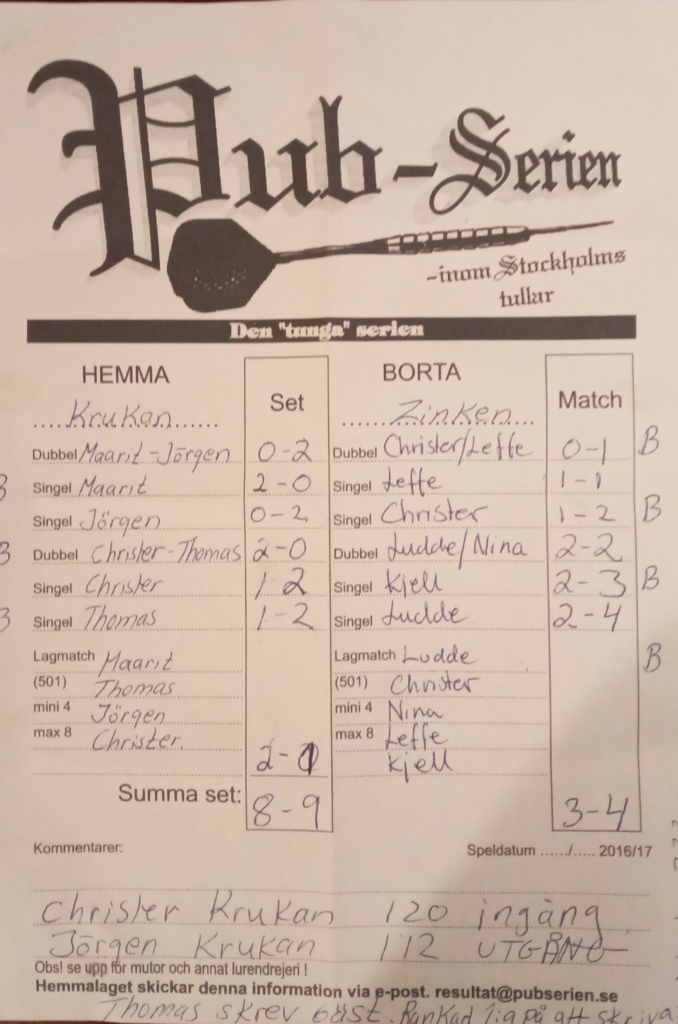 Pub-Serien
-inom Stockholms
tullar
Den "tunga" serien
HEMMA Set BORTA Match
Krukan Zinken
Dubbel Maarit-Jörgen 0-2 Dubbel Christer/Leffe 0-1 B
B Singel Maarit 2-0 Singel Leffe 1-1
Singel Jörgen 0-2 Singel Christer 1-2 B
B Dubbel Christer-Thomas 2-0 Dubbel Ludde/Nina 2-2
Singel Christer 1 2 Singel Kjell 2-3 B
B Singel Thomas 1-2 Singel Ludde 2-4
Lagmatch Maarit Lagmatch Ludde B
(501) Thomas (501) Christer
mini 4 Jörgen mini 4 Nina
max 8 Christer. max 8 Leffe
2-1 Kjell
Summa set: 8-9 3-4
Kommentarer: Speldatum ....../...... 2016/17
Christer Krukan 120 ingång
Jörgen Krukan 112 UTGÅNG
Obs! se upp för mutor och annat lurendrejeri !
Hemmalaget skickar denna information via e-post. resultat@pubserien.se
Thomas skrev på att skriva